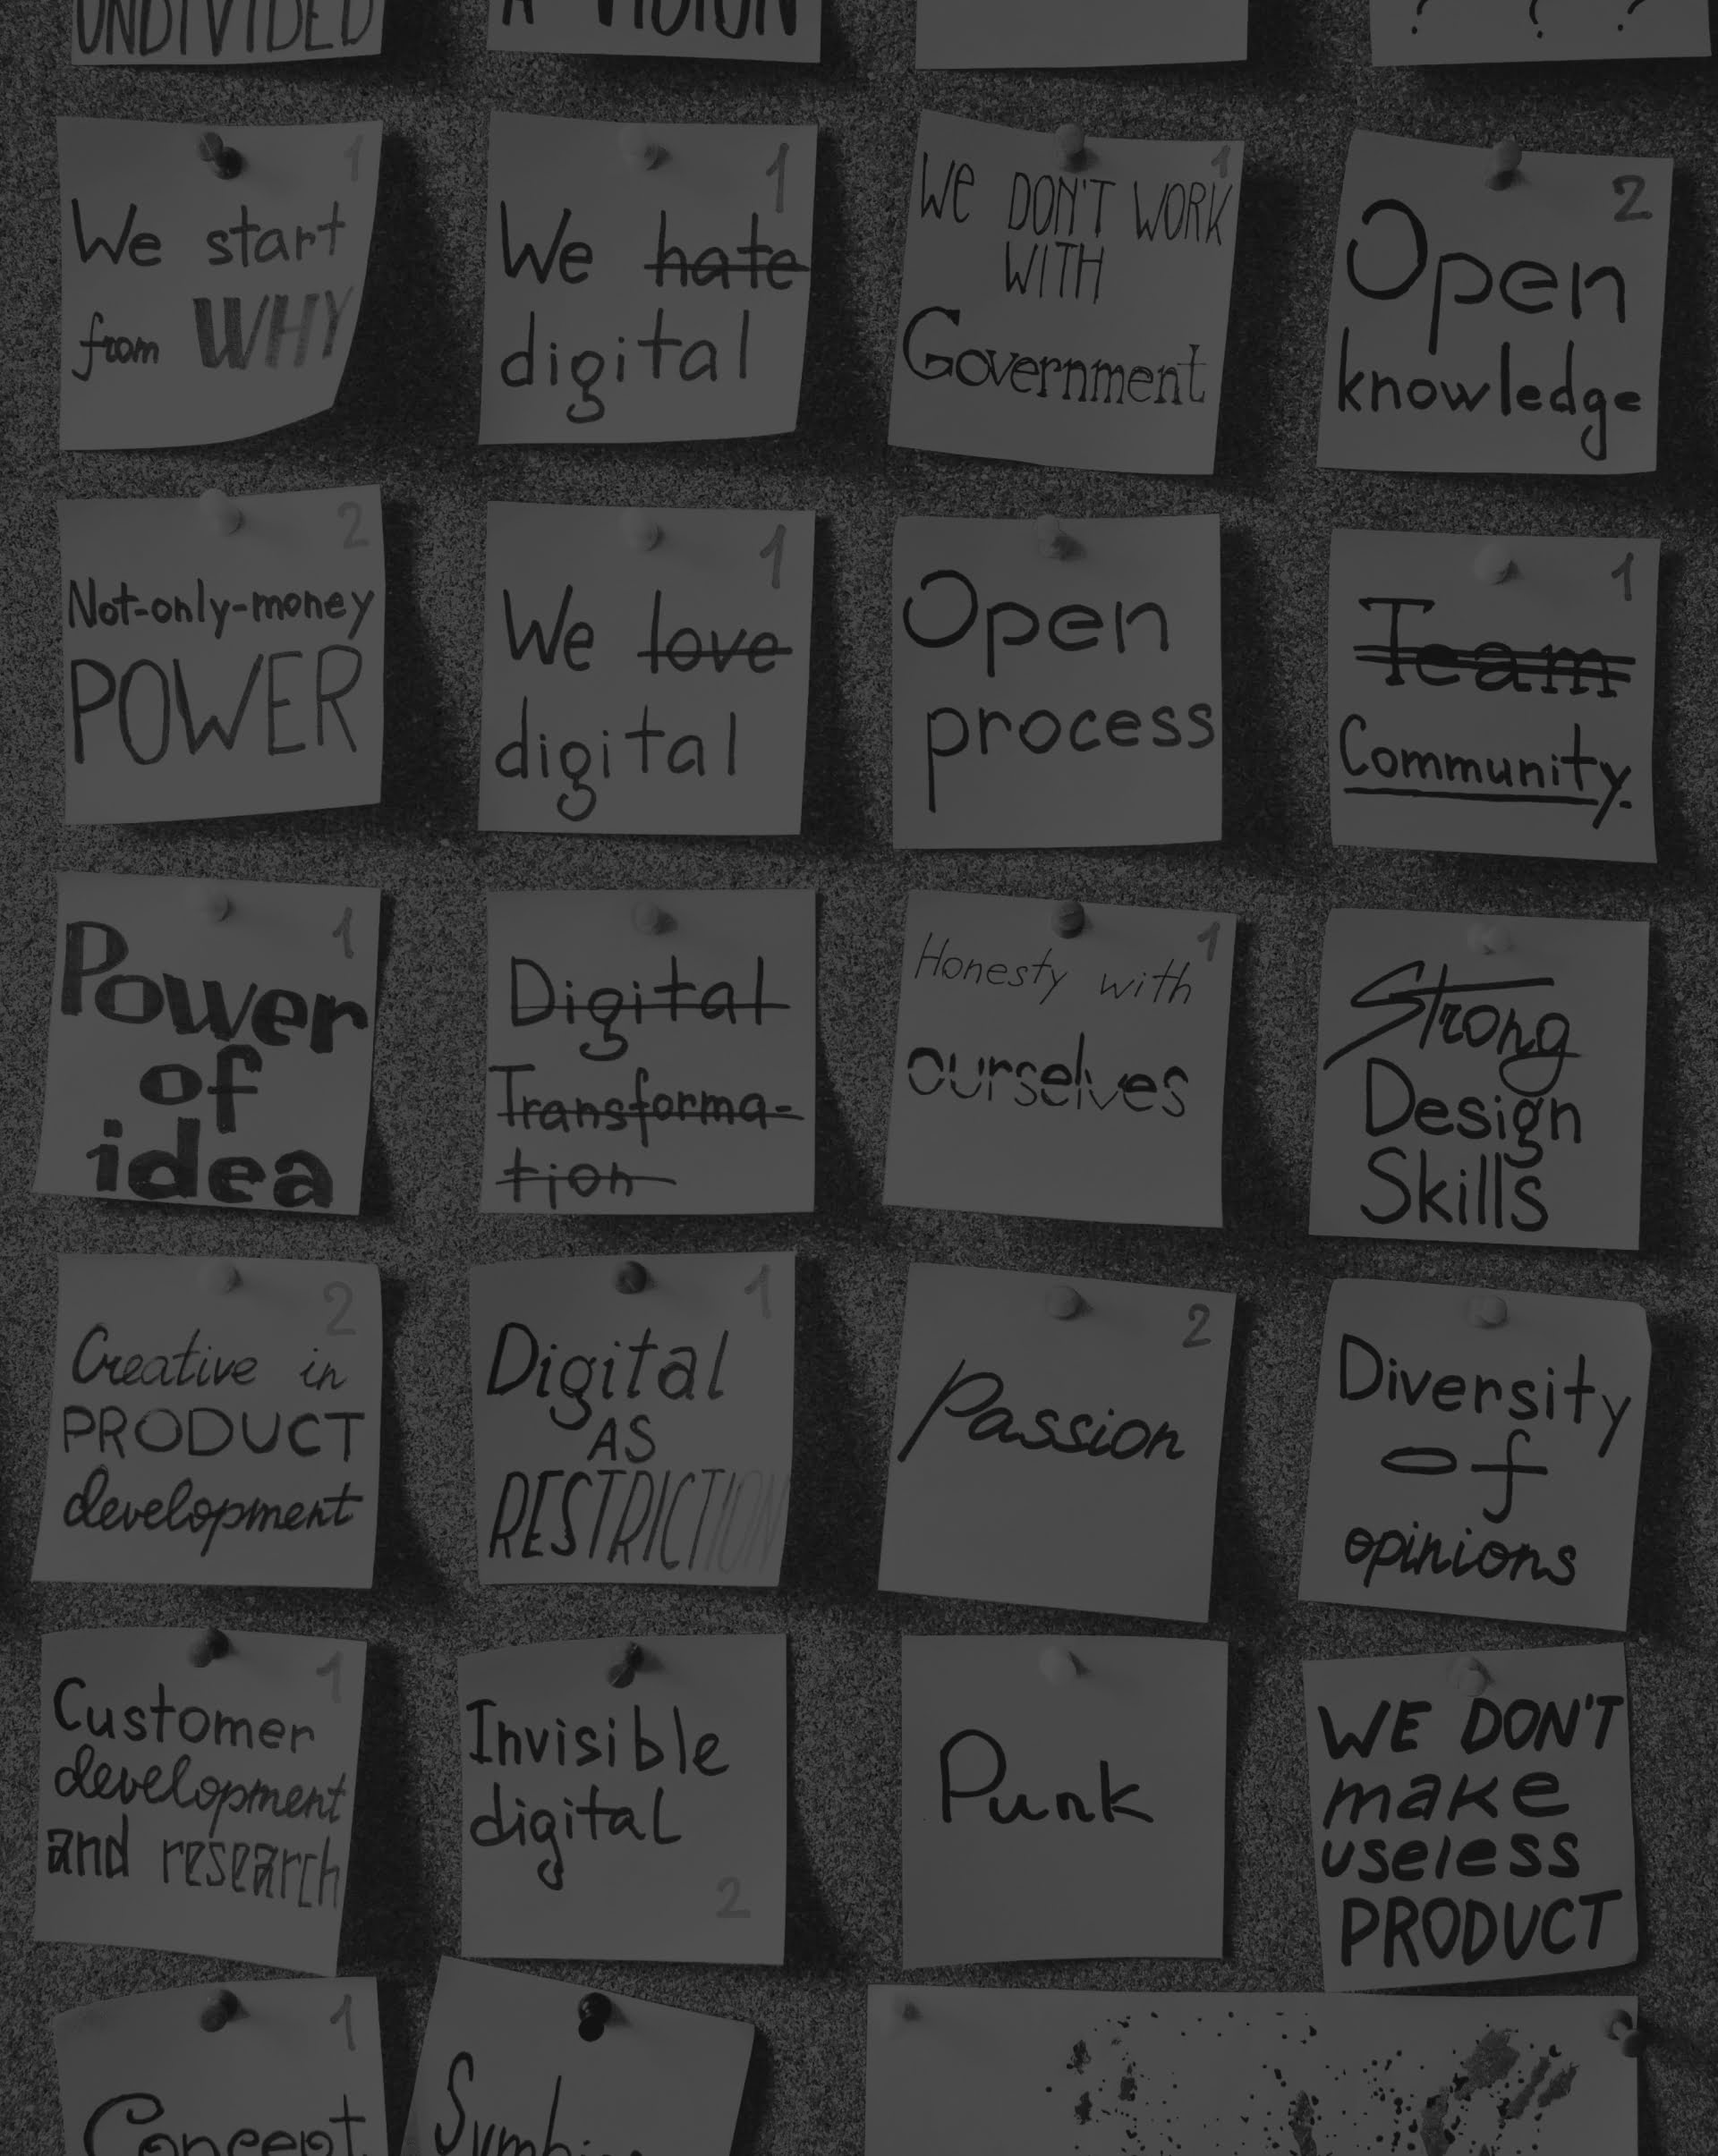 UNDIVIDED
A VISION
? ? ?
1
We start
from WHY
1
We hate
digital
1
We DON'T WORK
WITH
Government
2
Open
knowledge
2
Not-only-money
POWER
1
We love
digital
Open
process
1
Team
Community.
1
Power
of
idea
Digital
Transforma-
tion
1
Honesty with
ourselves
Strong
Design
Skills
2
Creative in
PRODUCT
development
1
Digital
AS
RESTRICTION
2
Passion
Diversity
of
opinions
1
Customer
development
and research
Invisible
digital
2
Punk
WE DON'T
make
useless
PRODUCT
1
Concept